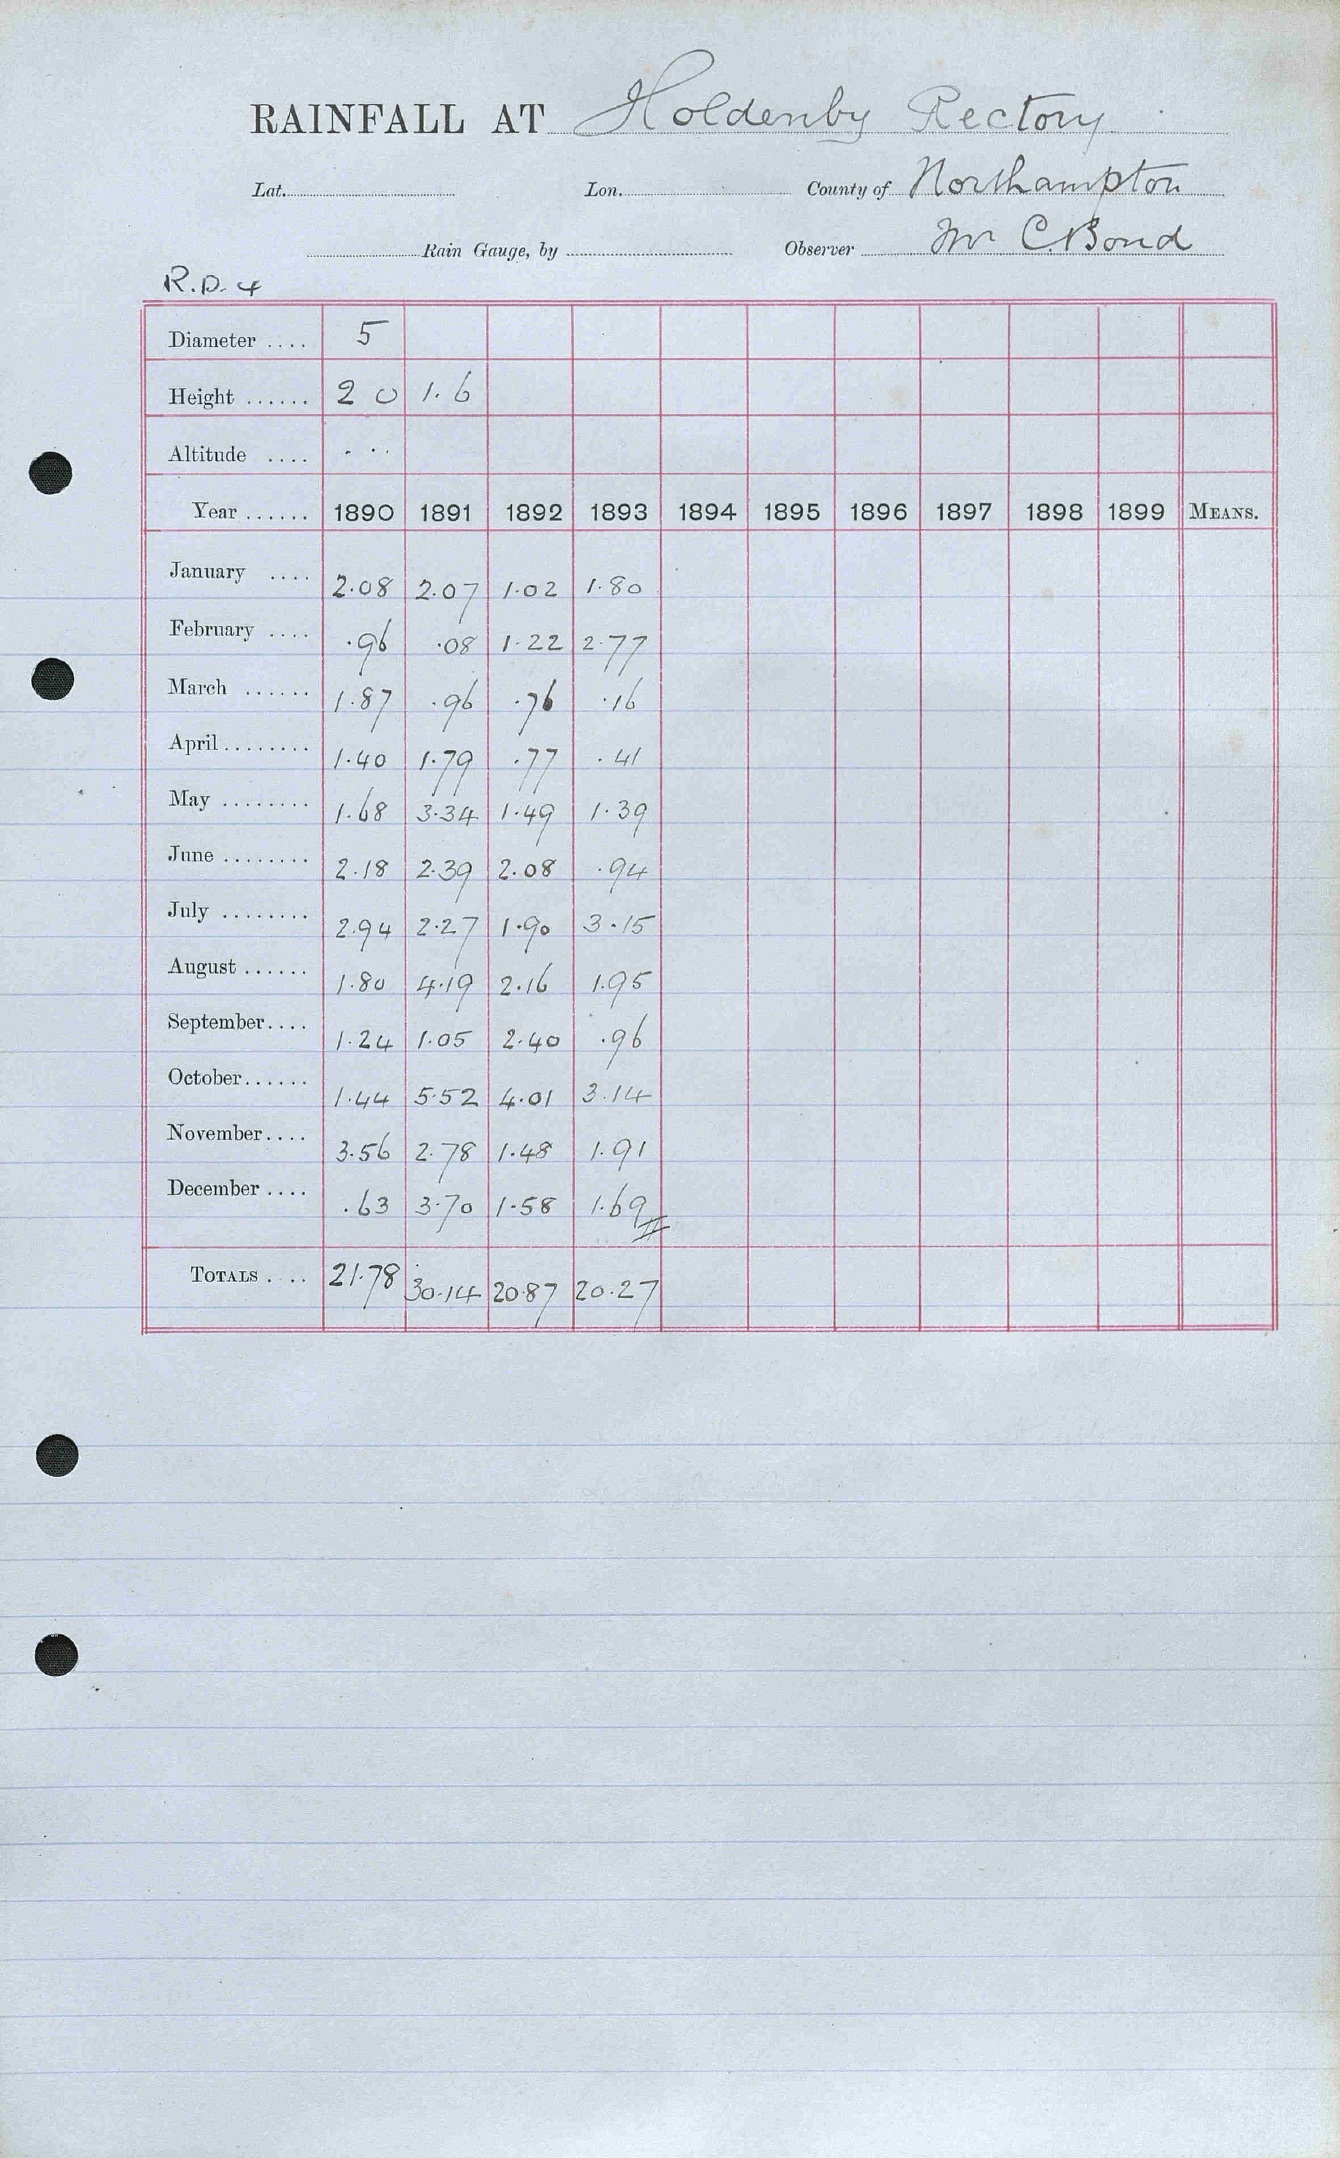 RAINFALL AT Holdenby Rectory
Lat. Lon. County of Northampton
Rain Gauge, by Observer Mr C. Bond
R.D. 4
Diameter .... 5
Height ...... 2 0 1.6
Altitude .... . . .
Year ...... 1890 1891 1892 1893 1894 1895 1896 1897 1898 1899 MEANS.
January .... 2.08 2.07 1.02 1.80
February .... .96 .08 1.22 2.77
March ...... 1.87 .96 .76 .16
April ........ 1.40 1.79 .77 .41
May ........ 1.68 3.34 1.49 1.39
June ........ 2.18 2.39 2.08 .94
July ........ 2.94 2.27 1.90 3.15
August ...... 1.80 4.19 2.16 1.95
September.... 1.24 1.05 2.40 .96
October...... 1.44 5.52 4.01 3.14
November.... 3.56 2.78 1.48 1.91
December .... .63 3.70 1.58 1.69
TOTALS .... 21.78 30.14 20.87 20.27